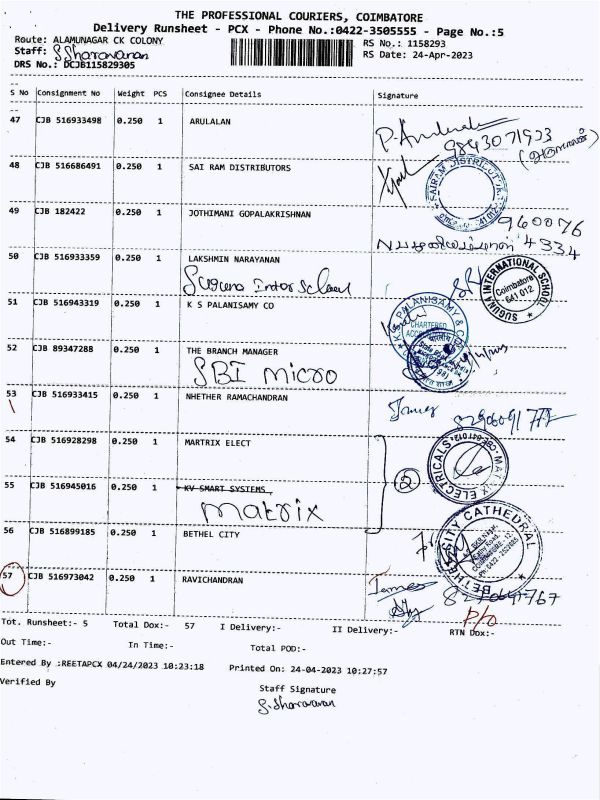 THE PROFESSIONAL COURIERS, COIMBATORE
Delivery Runsheet - PCX - Phone No.:0422-3505555 - Page No.:5
Route: ALAMUNAGAR CK COLONY
RS No.: 1158293
Staff: S. Sharavanan
RS Date: 24-Apr-2023
DRS No.: DCJB115829305
S No Consignment No Weight PCS Consignee Details Signature
47 CJB 516933498 0.250 1 ARULALAN
9843071933
48 CJB 516686491 0.250 1 SAI RAM DISTRIBUTORS
SAIRAM DISTRIBUTORS
49 CJB 182422 0.250 1 JOTHIMANI GOPALAKRISHNAN
960076
4334
50 CJB 516933359 0.250 1 LAKSHMIN NARAYANAN
SUGUNA INTERNATIONAL SCHOOL
Coimbatore
641 012
51 CJB 516943319 0.250 1 K S PALANISAMY CO
PALANISAMY & CO
CHARTERED
52 CJB 89347288 0.250 1 THE BRANCH MANAGER
SBI micro
53 CJB 516933415 0.250 1 NHETHER RAMACHANDRAN
James
54 CJB 516928298 0.250 1 MARTRIX ELECT
MATRIX ELECTRICALS
55 CJB 516945016 0.250 1 KV SMART SYSTEMS
Matrix
2
56 CJB 516899185 0.250 1 BETHEL CITY
BETHEL CITY CATHEDRAL
57 CJB 516973042 0.250 1 RAVICHANDRAN
James
P/O
Tot. Runsheet:- 5 Total Dox:- 57 I Delivery:- II Delivery:- RTN Dox:-
Out Time:- In Time:- Total POD:-
Entered By :REETAPCX 04/24/2023 10:23:18 Printed On: 24-04-2023 10:27:57
Verified By
Staff Signature
S. Sharavanan